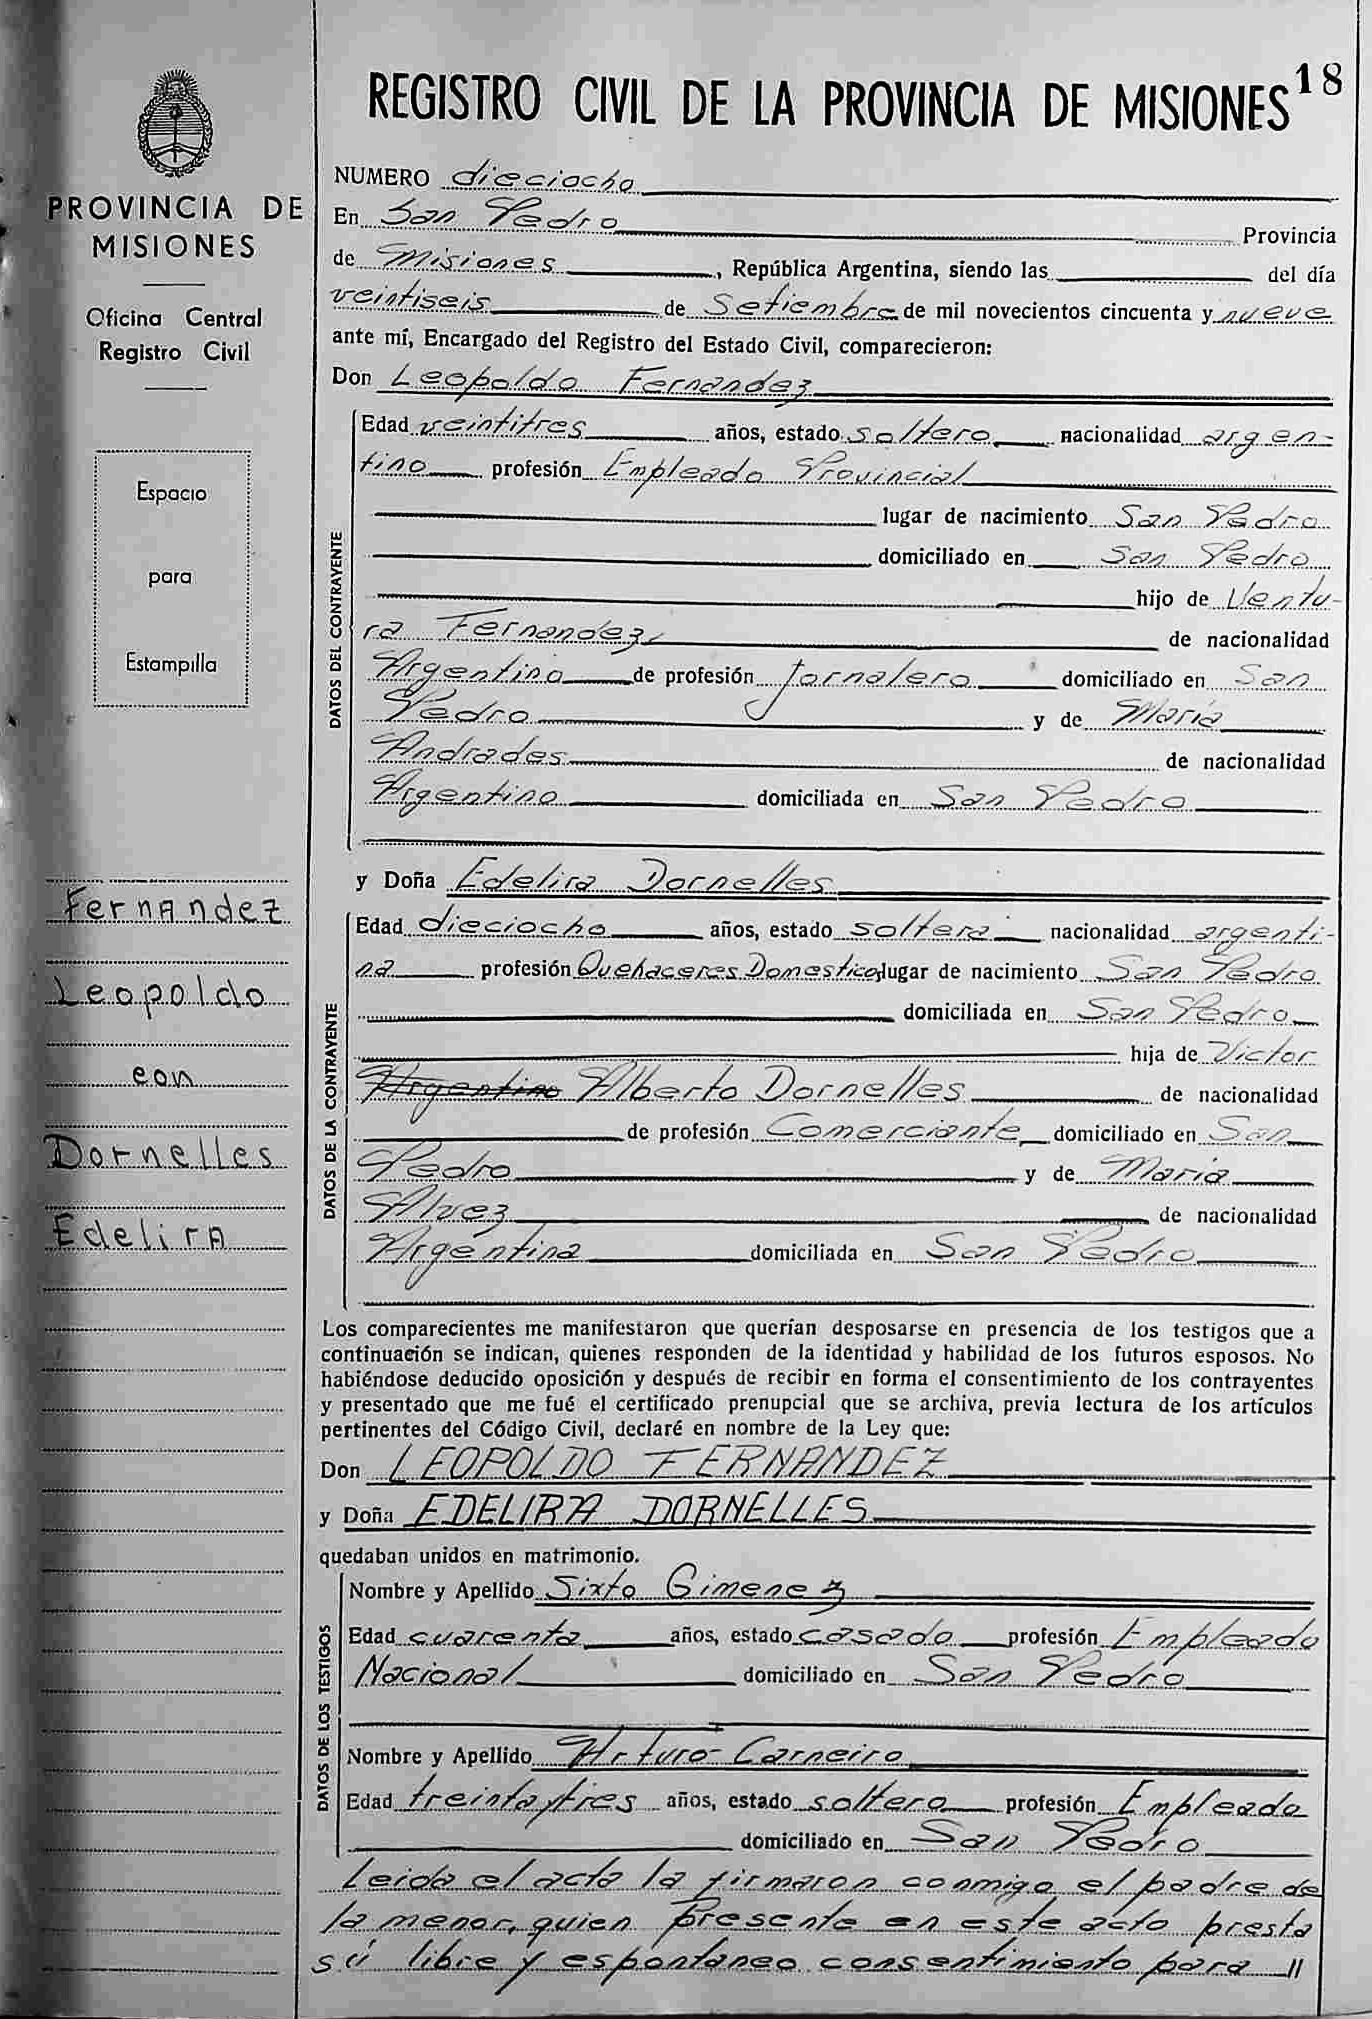 18
REGISTRO CIVIL DE LA PROVINCIA DE MISIONES
PROVINCIA DE
MISIONES
Oficina Central
Registro Civil
Espacio
para
Estampilla
Fernandez
Leopoldo
con
Dornelles
Edelira
NUMERO dieciocho
En San Pedro Provincia
de Misiones, República Argentina, siendo las del día
veintiseis de Setiembre de mil novecientos cincuenta y nueve
ante mí, Encargado del Registro del Estado Civil, comparecieron:
Don Leopoldo Fernandez
DATOS DEL CONTRAYENTE
Edad veintitres años, estado soltero nacionalidad argen-
tino profesión Empleado Provincial
lugar de nacimiento San Pedro
domiciliado en San Pedro
hijo de Ventu-
ra Fernandez de nacionalidad
Argentino de profesión Jornalero domiciliado en San
Pedro y de Maria
Andrades de nacionalidad
Argentino domiciliada en San Pedro
y Doña Edelira Dornelles
DATOS DE LA CONTRAYENTE
Edad dieciocho años, estado soltera nacionalidad argenti-
na profesión Quehaceres Domesticos lugar de nacimiento San Pedro
domiciliada en San Pedro
hija de Victor
Argentino Alberto Dornelles de nacionalidad
de profesión Comerciante domiciliado en San
Pedro y de Maria
Alvez de nacionalidad
Argentina domiciliada en San Pedro
Los comparecientes me manifestaron que querían desposarse en presencia de los testigos que a
continuación se indican, quienes responden de la identidad y habilidad de los futuros esposos. No
habiéndose deducido oposición y después de recibir en forma el consentimiento de los contrayentes
y presentado que me fué el certificado prenupcial que se archiva, previa lectura de los artículos
pertinentes del Código Civil, declaré en nombre de la Ley que:
Don LEOPOLDO FERNANDEZ
y Doña EDELIRA DORNELLES
quedaban unidos en matrimonio.
DATOS DE LOS TESTIGOS
Nombre y Apellido Sixto Gimenez
Edad cuarenta años, estado casado profesión Empleado
Nacional domiciliado en San Pedro
Nombre y Apellido Arturo Carneiro
Edad treintaytres años, estado soltero profesión Empleado
domiciliado en San Pedro
Leida el acta la firmaron conmigo el padre de
la menor, quien presente en este acto presta
sú libre y espontaneo consentimiento para //